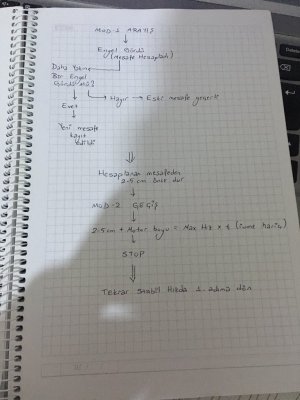 MOD-1 ARAYIŞ
Engel Gördü
(mesafe Hesapladı)
Daha Yakın
Bir Engel
Gördü mü?
Hayır → Eski mesafe geçerli
Evet
Yeni mesafe
kayıt
edildi
Hesaplanan mesafeden
2.5 cm önce dur
MOD-2 GEÇİŞ
2.5cm + Motor boyu = Max Hız x t (ivme hariç)
STOP
Tekrar Sabit Hızda 1. adıma dön